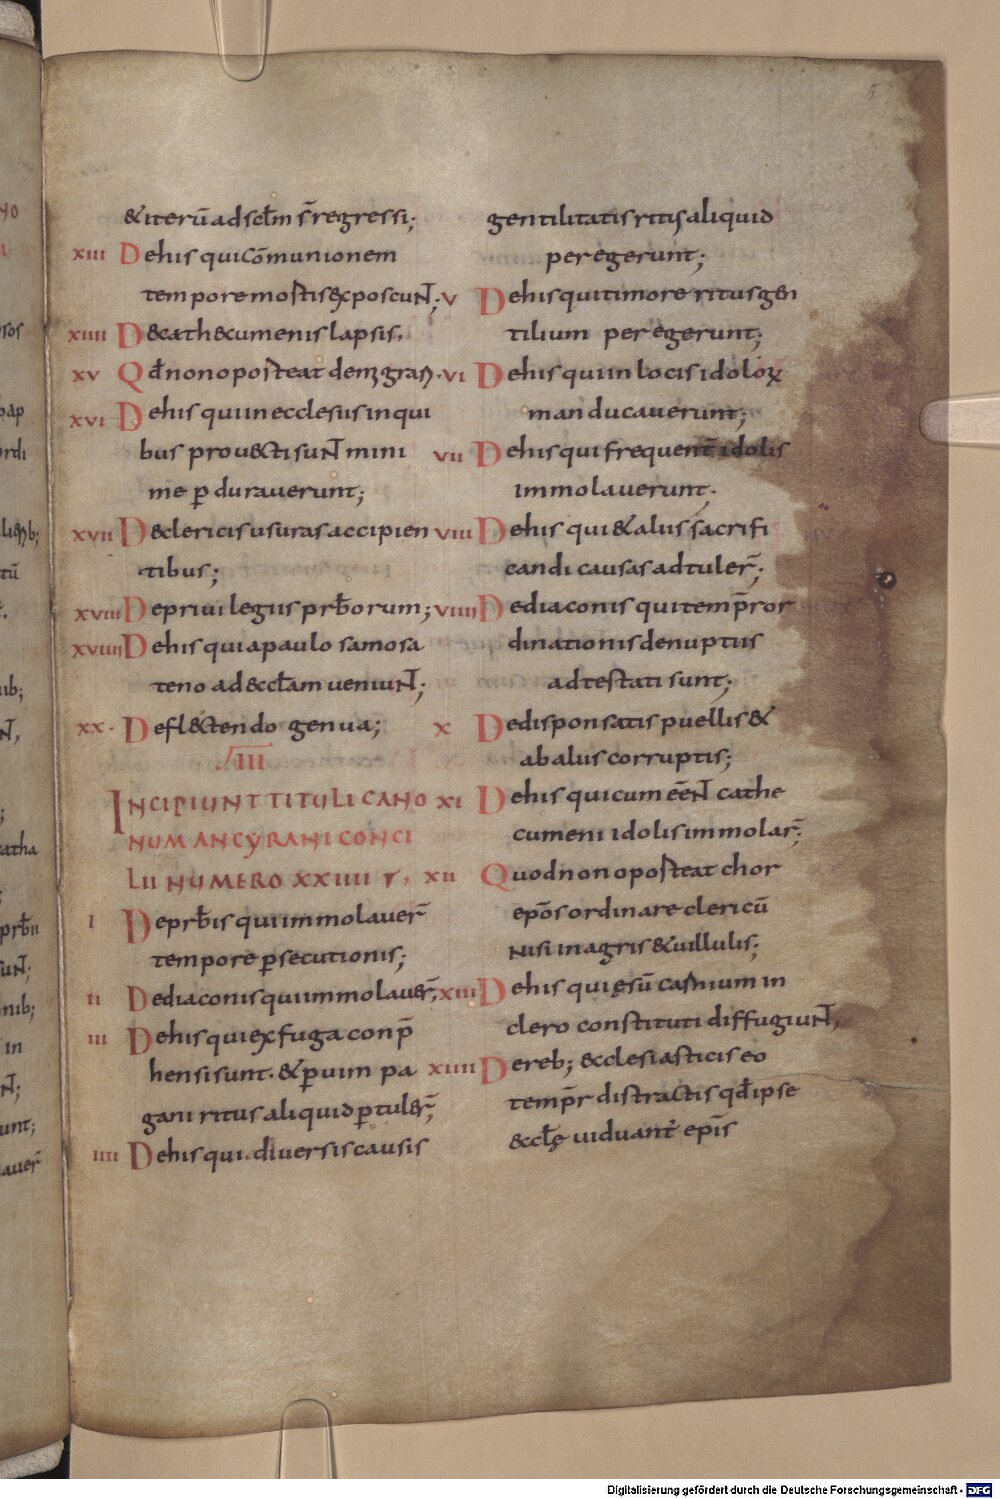 5
&iterū ad sc̅lm s̅ regressi;
xiii De his qui cōmunionem
tempore mortis exposcuɴt;
xiiii De cath&cumenis lapsis,
xv Qd̅ non oporteat demigrari.
xvi De his qui in ecclesiis in qui
bus prou&cti suɴt mini
me p̲ durauerunt;
xvii De clericis usuras accipien
tibus;
xviii De priuilegiis prb̅orum;
xviiii De his qui a paulo samosa
teno ad eccl̅am ueniuɴt;
xx. De fl&tendo genua;
III
INCIPIUNT TITULI CANO
NUM ANCYRANI CONCI
LII NUMERO XXIIII
i De prb̅is qui immolauer̅
tempore p̲secutionis;
ii De diaconis qui immolauer̅;
iii De his qui ex fuga conp̅
hensi sunt. & p̲ uim pa
gani ritus aliquid p̲tuler̅;
iiii De his qui diuersis causis
gentilitatis ritus aliquid
peregerunt;
v De his qui timore ritus gen
tilium peregerunt;
vi De his qui in locis idoloꝝ
manducauerunt;
vii De his qui frequent̅ idolis
immolauerunt.
viii De his qui & alius sacrifi
candi causas adtuler̅;
viiii De diaconis qui temp̅r or
dinationis de nuptiis
adtestati sunt;
x De disponsatis puellis &
ab aliis corruptis;
xi De his qui cum eēɴt cathe
cumeni idolis immolar̅;
xii Quod non oporteat chor
epōs ordinare clericū
nisi in agris & uillulis;
xiii De his qui ęsū carnium in
clero constituti diffugiuɴt,
xiiii De reb; &clesiasticis eo
temp̅r distractis qd̅ ipse
&ccl̅ę uiduant epīs
Digitalisierung gefördert durch die Deutsche Forschungsgemeinschaft - DFG